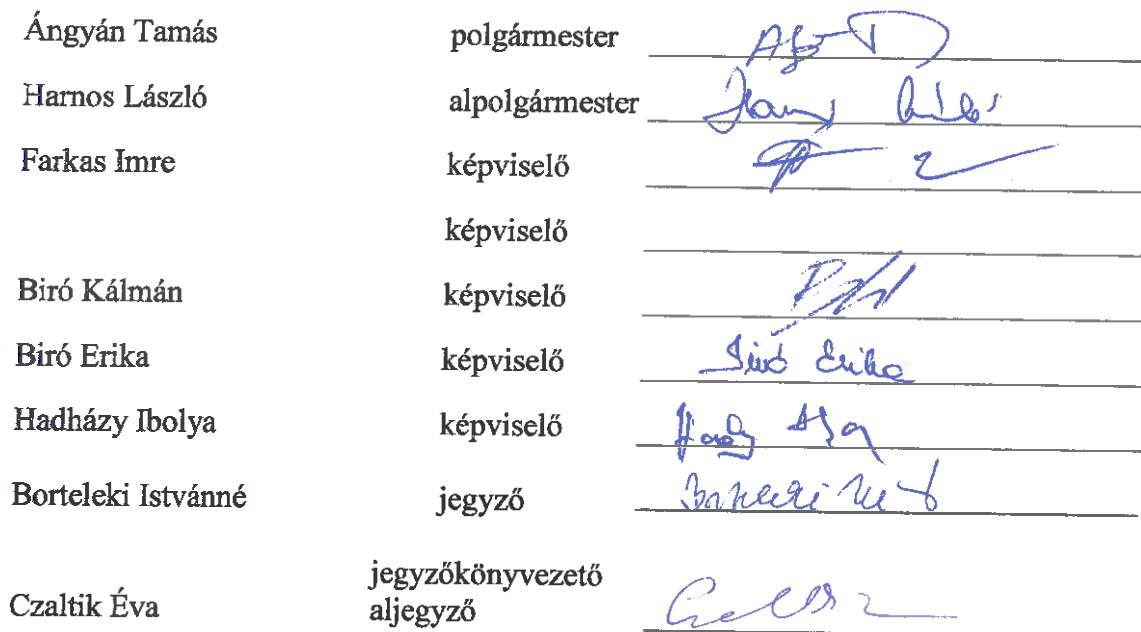 Ángyán Tamás polgármester
Harnos László alpolgármester
Farkas Imre képviselő
képviselő
Biró Kálmán képviselő
Biró Erika képviselő Biró Erika
Hadházy Ibolya képviselő
Borteleki Istvánné jegyző Borteleki
Czaltik Éva jegyzőkönyvezető
aljegyző